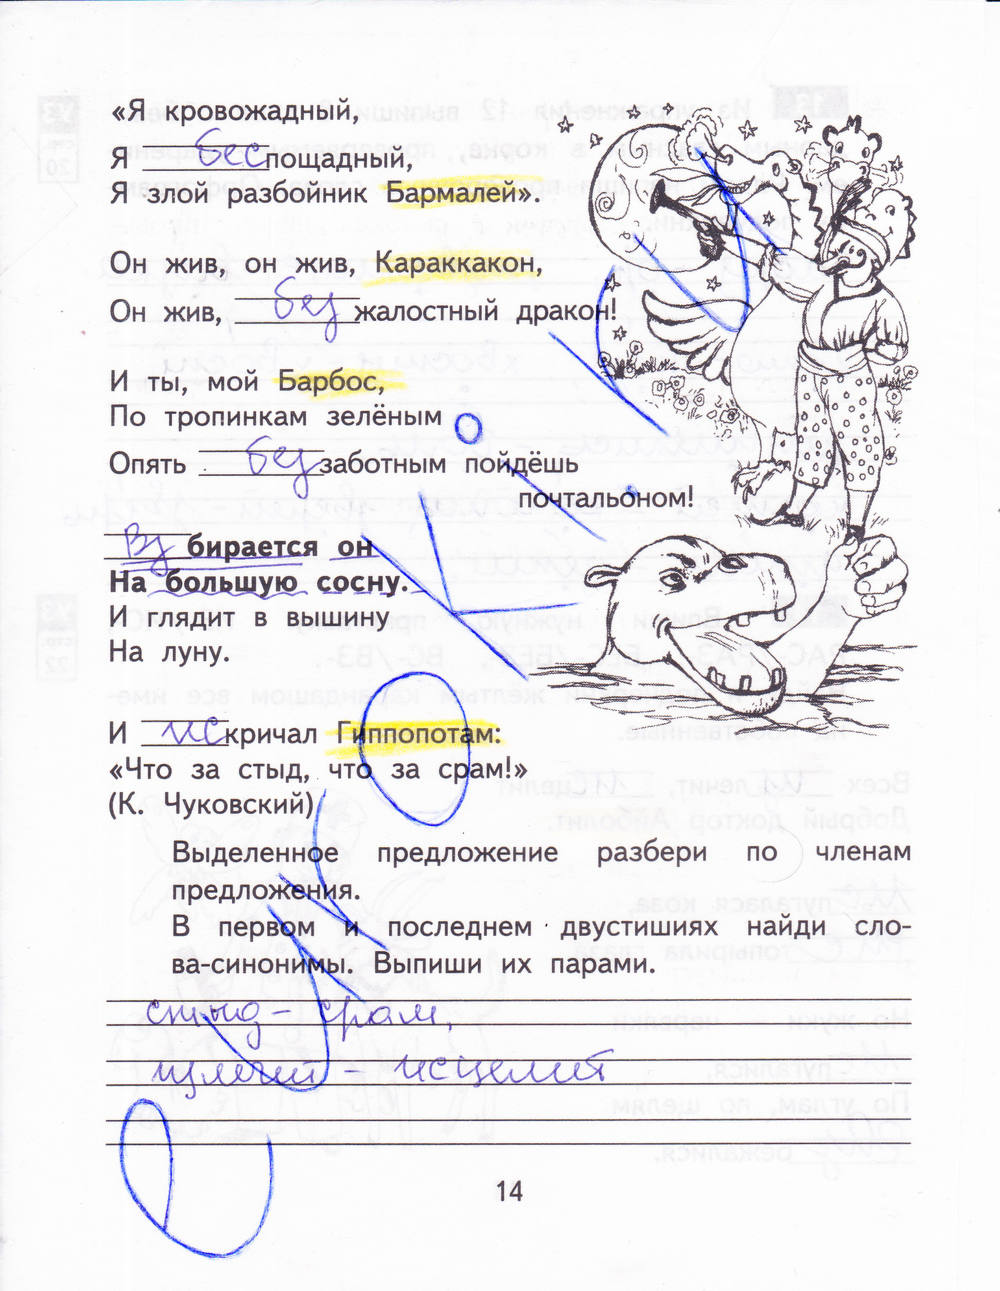 «Я кровожадный,
Я беспощадный,
Я злой разбойник Бармалей».
Он жив, он жив, Караккакон,
Он жив, безжалостный дракон!
И ты, мой Барбос,
По тропинкам зелёным
Опять беззаботным пойдёшь
почтальоном!
Вз бирается он
На большую сосну.
И глядит в вышину
На луну.
И искричал Гиппопотам:
«Что за стыд, что за срам!»
(К. Чуковский)
Выделенное предложение разбери по членам
предложения.
В первом и последнем двустишиях найди сло-
ва-синонимы. Выпиши их парами.
стыд - срам,
излечит - исцелит
14